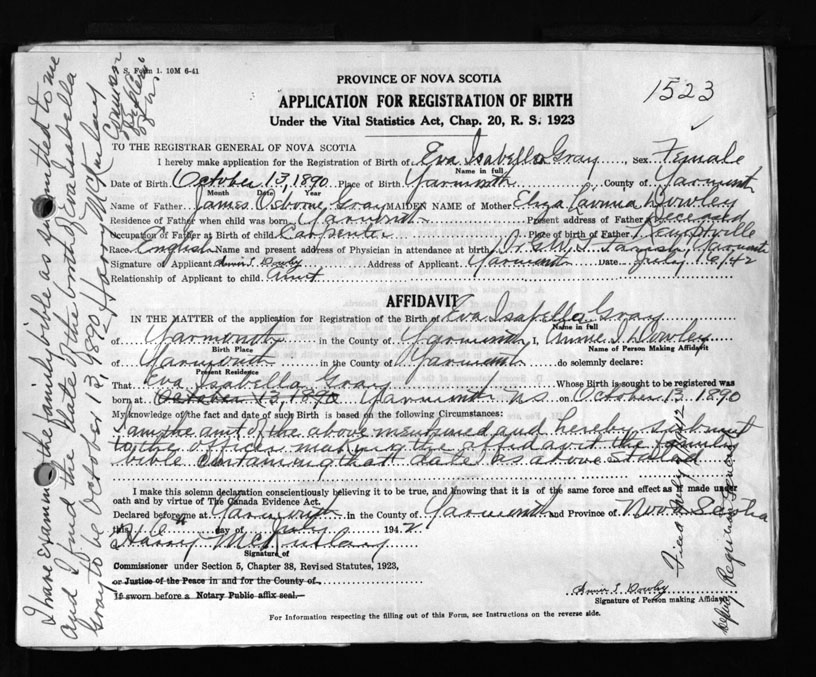 S. Form 1. 10M 6-41
PROVINCE OF NOVA SCOTIA
1523
APPLICATION FOR REGISTRATION OF BIRTH
Under the Vital Statistics Act, Chap. 20, R. S. 1923
TO THE REGISTRAR GENERAL OF NOVA SCOTIA
I hereby make application for the Registration of Birth of Eva Isabella Gray, Sex Female
Name in full
Date of Birth October 13, 1890 Place of Birth Yarmouth, County of Yarmouth
Month Date Year
Name of Father James Osborne Gray MAIDEN NAME of Mother Eliza Lavinia Dowley
Residence of Father when child was born Yarmouth Present address of Father Deceased
Occupation of Father at Birth of child Carpenter Place of Birth of Father Kemptville
Race English Name and present address of Physician in attendance at birth Dr. G. W. T. Farish, Yarmouth
Signature of Applicant Address of Applicant Yarmouth Date July 16/42
Relationship of Applicant to child Aunt
AFFIDAVIT
IN THE MATTER of the application for Registration of the Birth of Eva Isabella Gray
Name in full
of Yarmouth in the County of Yarmouth I, Annie I Dowley
Birth Place Name of Person Making Affidavit
of Yarmouth in the County of Yarmouth do solemnly declare:
Present Residence
That Eva Isabella Gray Whose Birth is sought to be registered was
born at October 13, 1890 Yarmouth N.S. on October 13 1890
My knowledge of the fact and date of such Birth is based on the following Circumstances:
I am the aunt of the above mentioned and hereby submit
to the officer making the affidavit the family
bible containing that date as above stated
I make this solemn declaration conscientiously believing it to be true, and knowing that it is of the same force and effect as if made under
oath and by virtue of The Canada Evidence Act.
Declared before me at Yarmouth in the County of Yarmouth and Province of Nova Scotia
this 16th day of July 1942
Harry McKinlay
Signature of
Commissioner under Section 5, Chapter 38, Revised Statutes, 1923,
or Justice of the Peace in and for the County of
If sworn before a Notary Public affix seal.
Signature of Person making Affidavit
For Information respecting the filling out of this Form, see Instructions on the reverse side.
I have examined the family bible as submitted to me
and I find the date of the birth of Eva Isabella
Gray to be October 13, 1890 Harry McKinlay
Deputy Registrar General